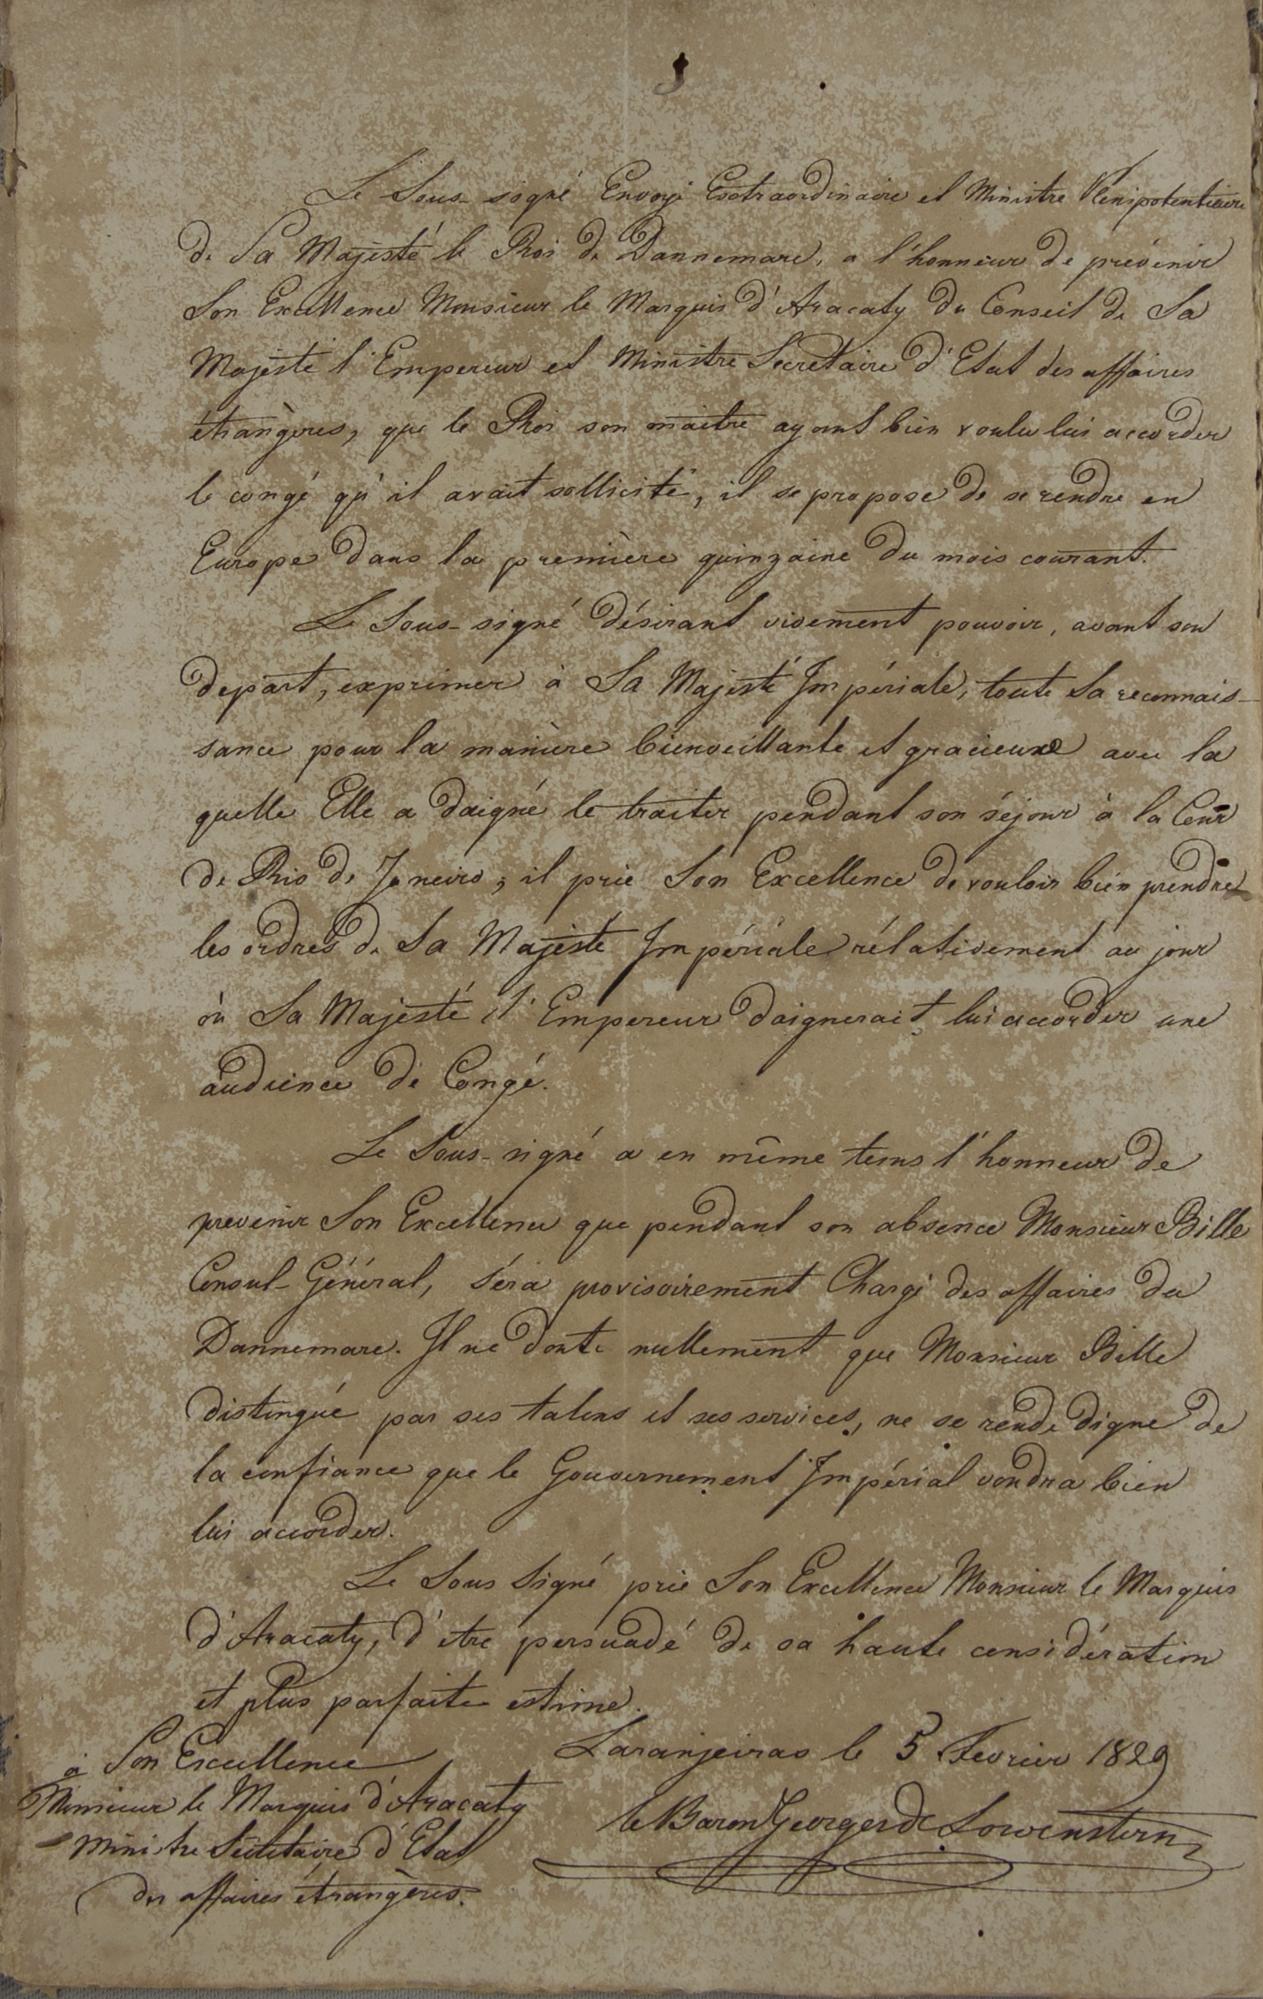 Le Sous-signé Envoyé Extraordinaire et Ministre Plenipotentiaire
de Sa Majesté le Roi de Dannemarc, a l'honneur de prévenir
Son Excellence Monsieur le Marquis d'Aracaty du Conseil de Sa
Majesté l'Empereur et Ministre Secretaire d'Etat des affaires
étrangères, que le Roi son maitre ayant bien voulu lui accorder
le congé qu'il avait sollicité, il se propose de se rendre en
Europe dans la première quinzaine du mois courant.
Le Sous-signé désirant vivement pouvoir, avant son
depart, exprimer à Sa Majesté Impériale, toute Sa reconnais-
sance pour la manière bienveillante et gracieuse avec la
quelle Elle a daigné le traiter pendant son séjour à la Cour
de Rio de Janeiro, il prie Son Excellence de vouloir bien prendre
les ordres de Sa Majesté Impériale rélativement au jour
où Sa Majesté l'Empereur daignerait lui accorder une
audience de Congé.
Le Sous-signé a en même tems l'honneur de
prevenir Son Excellence que pendant son absence Monsieur Bille
Consul-Général, séra provisoirement Chargé des affaires du
Dannemarc. Il ne doute nullement que Monsieur Bille
distingué par ses talens et ses services, ne se rende digne de
la confiance que le Gouvernement Impérial voudra bien
lui accorder.
Le Sous Signé prie Son Excellence Monsieur le Marquis
d'Aracaty, d'etre persuadé de sa haute considération
et plus parfaite estime.
Laranjeiras le 5 Fevrier 1829
le Baron Georges de Lowenstern
à Son Excellence
Monsieur le Marquis d'Aracaty
Ministre Secretaire d'Etat
des affaires étrangères.